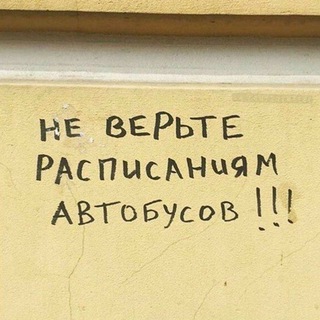 НЕ ВЕРЬТЕ
РАСПИСАНИЯМ
АВТОБУСОВ!!!